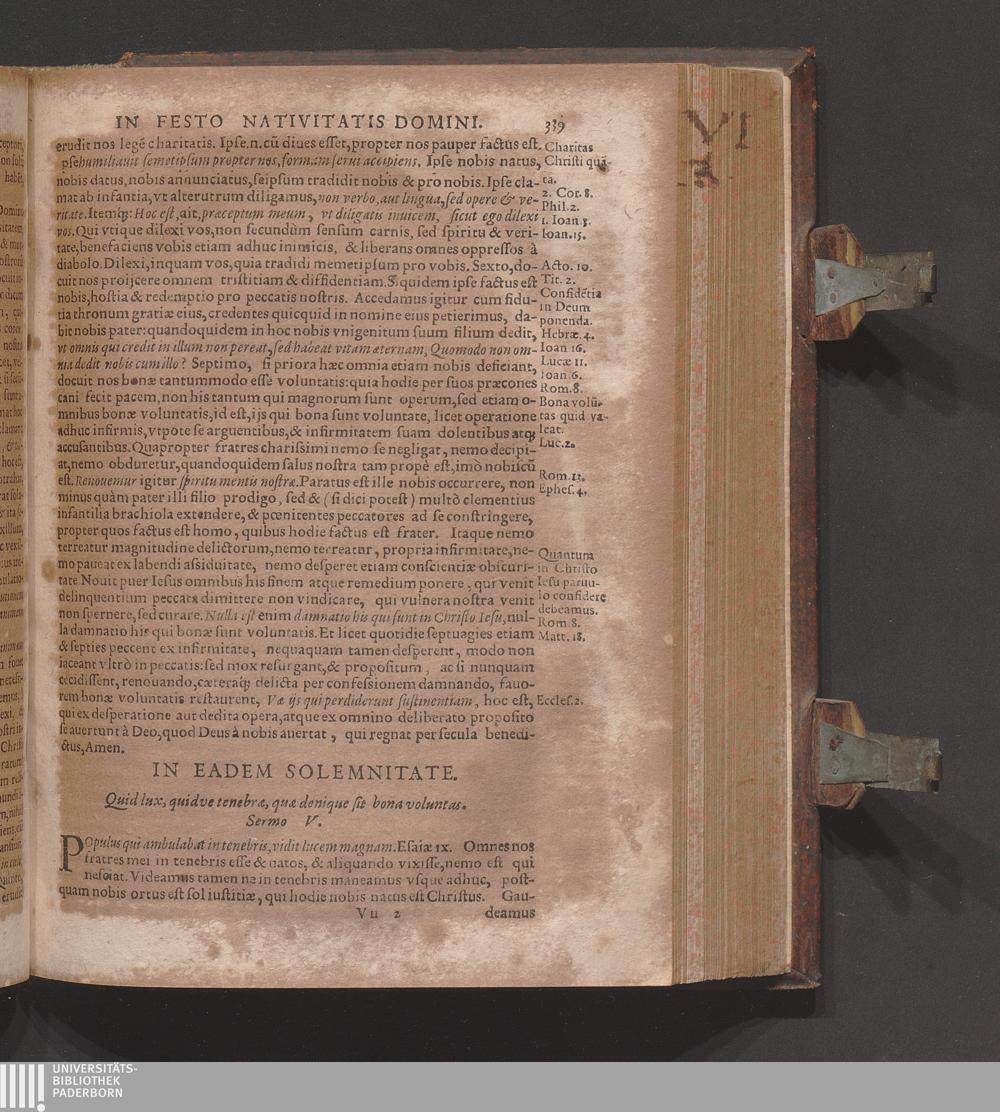 IN FESTO NATIVITATIS DOMINI. 339
erudit nos legẽ charitatis. Ipse.n.cũ diues esset, propter nos pauper factus est.
pse humiliauit semetipsum propter nos, formam serui accipiens. Ipse nobis natus,
nobis datus, nobis annunciatus, seipsum tradidit nobis & pro nobis. Ipse cla-
mat ab infantia, vt alterutrum diligamus, non verbo, aut lingua, sed opere & ve-
ritate. Itemq;: Hoc est, ait, præceptum meum, vt diligatis inuicem, sicut ego dilexi
vos. Qui vtique dilexi vos, non secundùm sensum carnis, sed spiritu & veri-
tate, benefaciens vobis etiam adhuc inimicis, & liberans omnes oppressos à
diabolo. Dilexi, inquam vos, quia tradidi memetipsum pro vobis. Sexto, do-
cuit nos proijcere omnem tristitiam & diffidentiam. Siquidem ipse factus est
nobis, hostia & redemptio pro peccatis nostris. Accedamus igitur cum fidu-
tia thronum gratiæ eius, credentes quicquid in nomine eius petierimus, da-
bit nobis pater: quandoquidem in hoc nobis vnigenitum suum filium dedit,
vt omnis qui credit in illum non pereat, sed habeat vitam æternam, Quomodo non om-
nia dedit nobis cum illo? Septimo, si priora hæc omnia etiam nobis deficiant,
docuit nos bonæ tantummodo esse voluntatis: quia hodie per suos præcones
cani fecit pacem, non his tantum qui magnorum sunt operum, sed etiam o-
mnibus bonæ voluntatis, id est, ijs qui bona sunt voluntate, licet operatione
adhuc infirmis, vtpote se arguentibus, & infirmitatem suam dolentibus atq;
accusantibus. Quapropter fratres charissimi nemo se negligat, nemo decipi-
at, nemo obduretur, quandoquidem salus nostra tam propè est, imò nobiscũ
est. Renouemur igitur spiritu mentis nostræ. Paratus est ille nobis occurrere, non
minus quàm pater illi filio prodigo, sed & (si dici potest) multò clementius
infantilia brachiola extendere, & pœnitentes peccatores ad se constringere,
propter quos factus est homo, quibus hodie factus est frater. Itaque nemo
terreatur magnitudine delictorum, nemo terreatur, propria infirmitate, ne-
mo paueat ex labendi assiduitate, nemo desperet etiam conscientiæ obscuri-
tate. Nouit puer Iesus omnibus his finem atque remedium ponere, qui venit
delinquentium peccata dimittere non vindicare, qui vulnera nostra venit
non spernere, sed curare. Nulla est enim damnatio his qui sunt in Christo Iesu, nul-
la damnatio his qui bonæ sunt voluntatis. Et licet quotidie septuagies etiam
& septies peccent ex infirmitate, nequaquam tamen desperent, modo non
iaceant vltrò in peccatis: sed mox resurgant, & propositum, ac si nunquam
cecidissent, renouando, cæteraq; delicta per confessionem damnando, fauo-
rem bonæ voluntatis restaurent, Væ ijs qui perdiderunt sustinentiam, hoc est,
qui ex desperatione aut dedita opera, atque ex omnino deliberato proposito
se auertunt à Deo, quod Deus à nobis auertat, qui regnat per secula benedi-
ctus, Amen.
Charitas
Christi quã-
ta.
2. Cor. 8.
Phil. 2.
1. Ioan. 3.
Ioan. 15.
Acto. 10.
Tit. 2.
Confidẽtia
in Deum
ponenda.
Hebræ. 4.
Ioan 16.
Lucæ 11.
Ioan. 6.
Rom. 8.
Bona volũ-
tas quid va-
leat.
Luc. 2.
Rom. 13.
Ephes. 4.
Quantum
in Christo
Iesu paruu-
lo confidere
debeamus.
Rom. 8.
Matt. 18.
Eccles. 2.
IN EADEM SOLEMNITATE.
Quid lux, quidve tenebræ, quæ denique sit bona voluntas.
Sermo V.
POpulus qui ambulabat in tenebris, vidit lucem magnam. Esaiæ ix. Omnes nos
fratres mei in tenebris esse & natos, & aliquando vixisse, nemo est qui
nesciat. Videamus tamen ne in tenebris maneamus vsque adhuc, post-
quam nobis ortus est sol iustitiæ, qui hodie nobis natus est Christus. Gau-
Vu 2 deamus
VI
UNIVERSITÄTS-
BIBLIOTHEK
PADERBORN